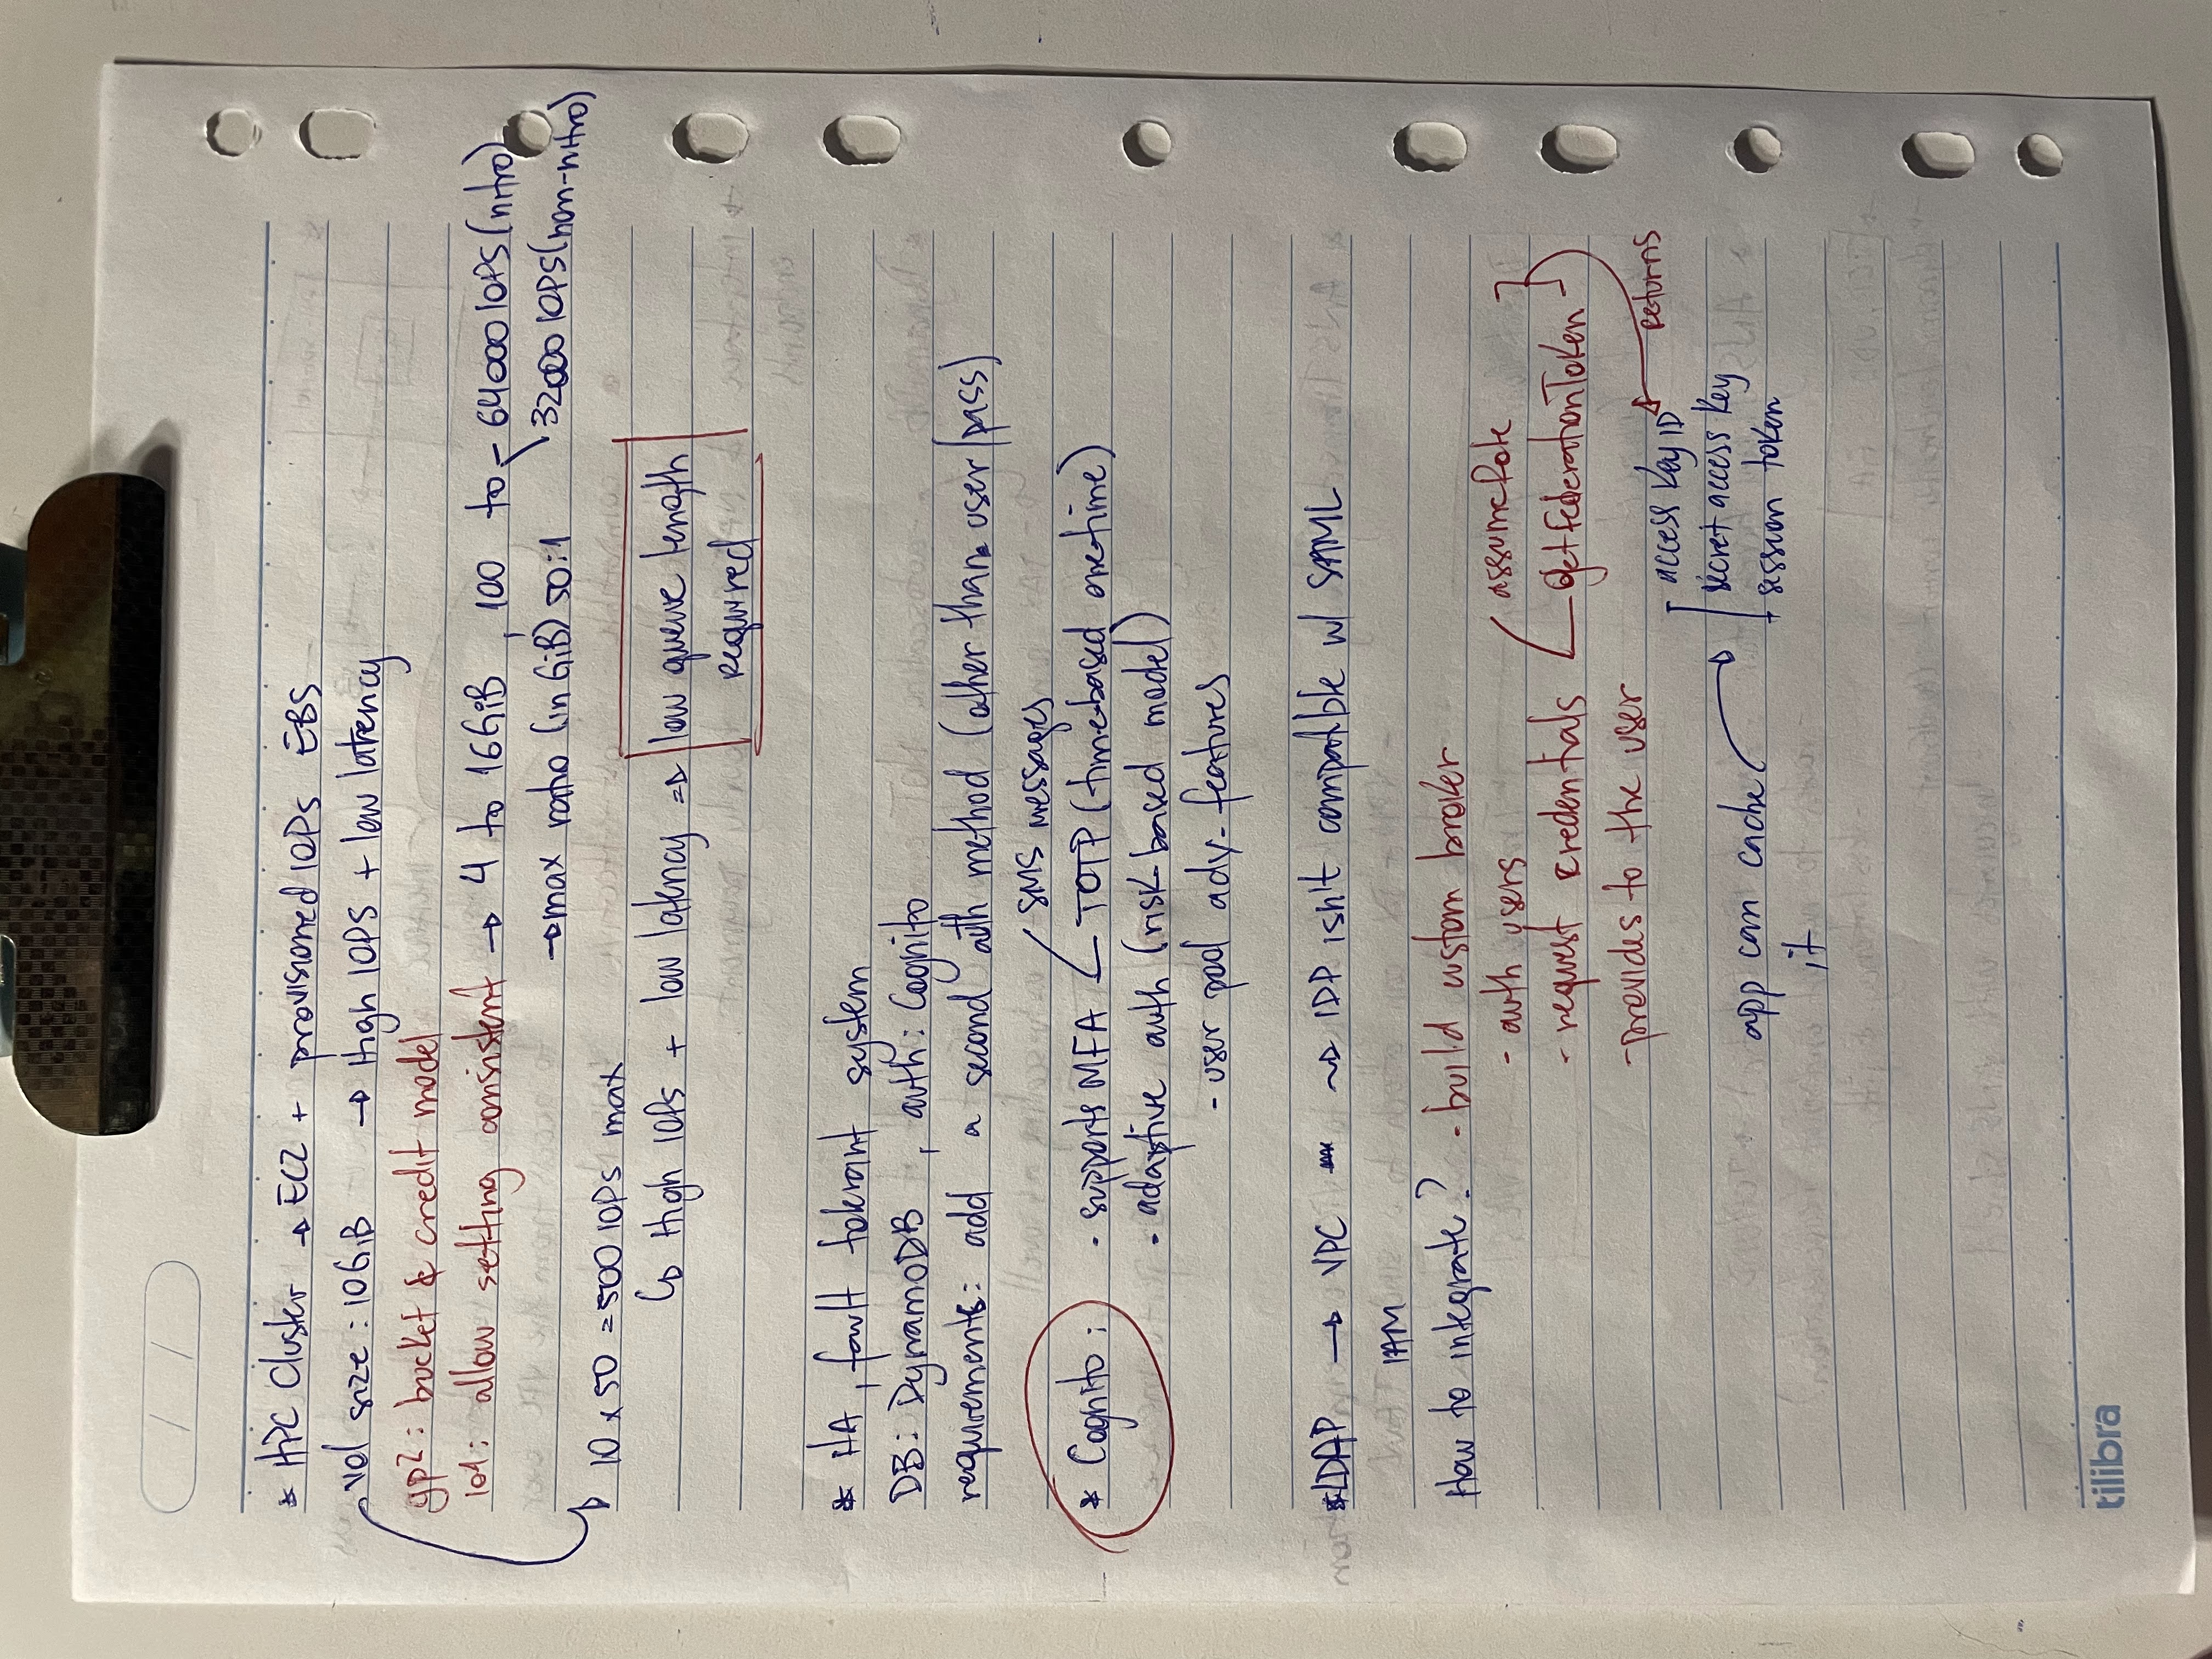 * HPC Cluster → EC2 + provisioned IOPs EBS
vol size : 10GiB → High IOPS + low latency
gp2 : bucket & credit model
io1 : allow setting consistent → 4 to 16GiB , 100 to - 64000 IOPS (nitro)
32000 IOPS (non-nitro)
→ max ratio (in GiB) 50:1
10 x 50 = 500 IOPs max
↳ High IOPs + low latency ⇒ low queue length
required
* HA , fault tolerant system
DB : DynamoDB , auth : Cognito
requirements : add a second auth method (other than user/pass)
SMS messages
* Cognito : · supports MFA TOTP (time-based one-time)
· adaptive auth (risk-based model)
- user pool adv. features
* LDAP → VPC ⇝ IDP isn't compatible w/ SAML
IAM
How to integrate? - build custom broker
- auth users
assumeRole
- request credentials getFederationToken
- provides to the user
returns
access key ID
secret access key
session token
app can cache
it
tilibra